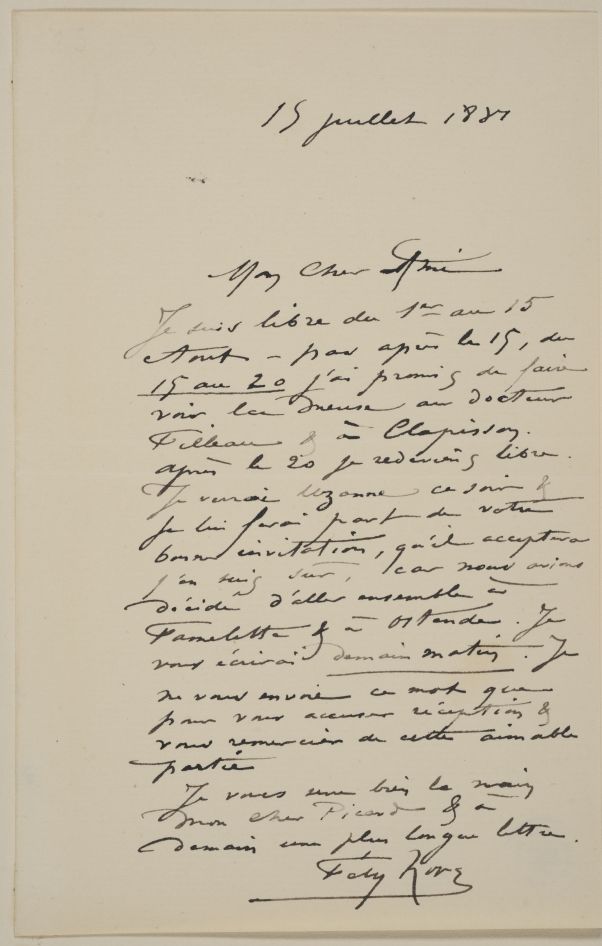 15 juillet 1887
Mon Cher Ami
Je suis libre du 1er au 15
Aout – pas après le 15, du
15 au 20 j'ai promis de faire
voir la Meuse au docteur
Filleau & à Clapisson.
après le 20 je redeviens libre.
Je verrai Uzanne ce soir &
je lui ferai part de votre
bonne invitation, qu'il acceptera
j'en suis sûr, car nous avions
décidé d'aller ensemble à
Famelette & à Ostende. Je
vous écrirai demain matin. Je
ne vous envoie ce mot que
pour vous accuser réception &
vous remercier de cette aimable
partie
Je vous serre bien la main
mon cher Picard & à
demain une plus longue lettre.
Fely Rops